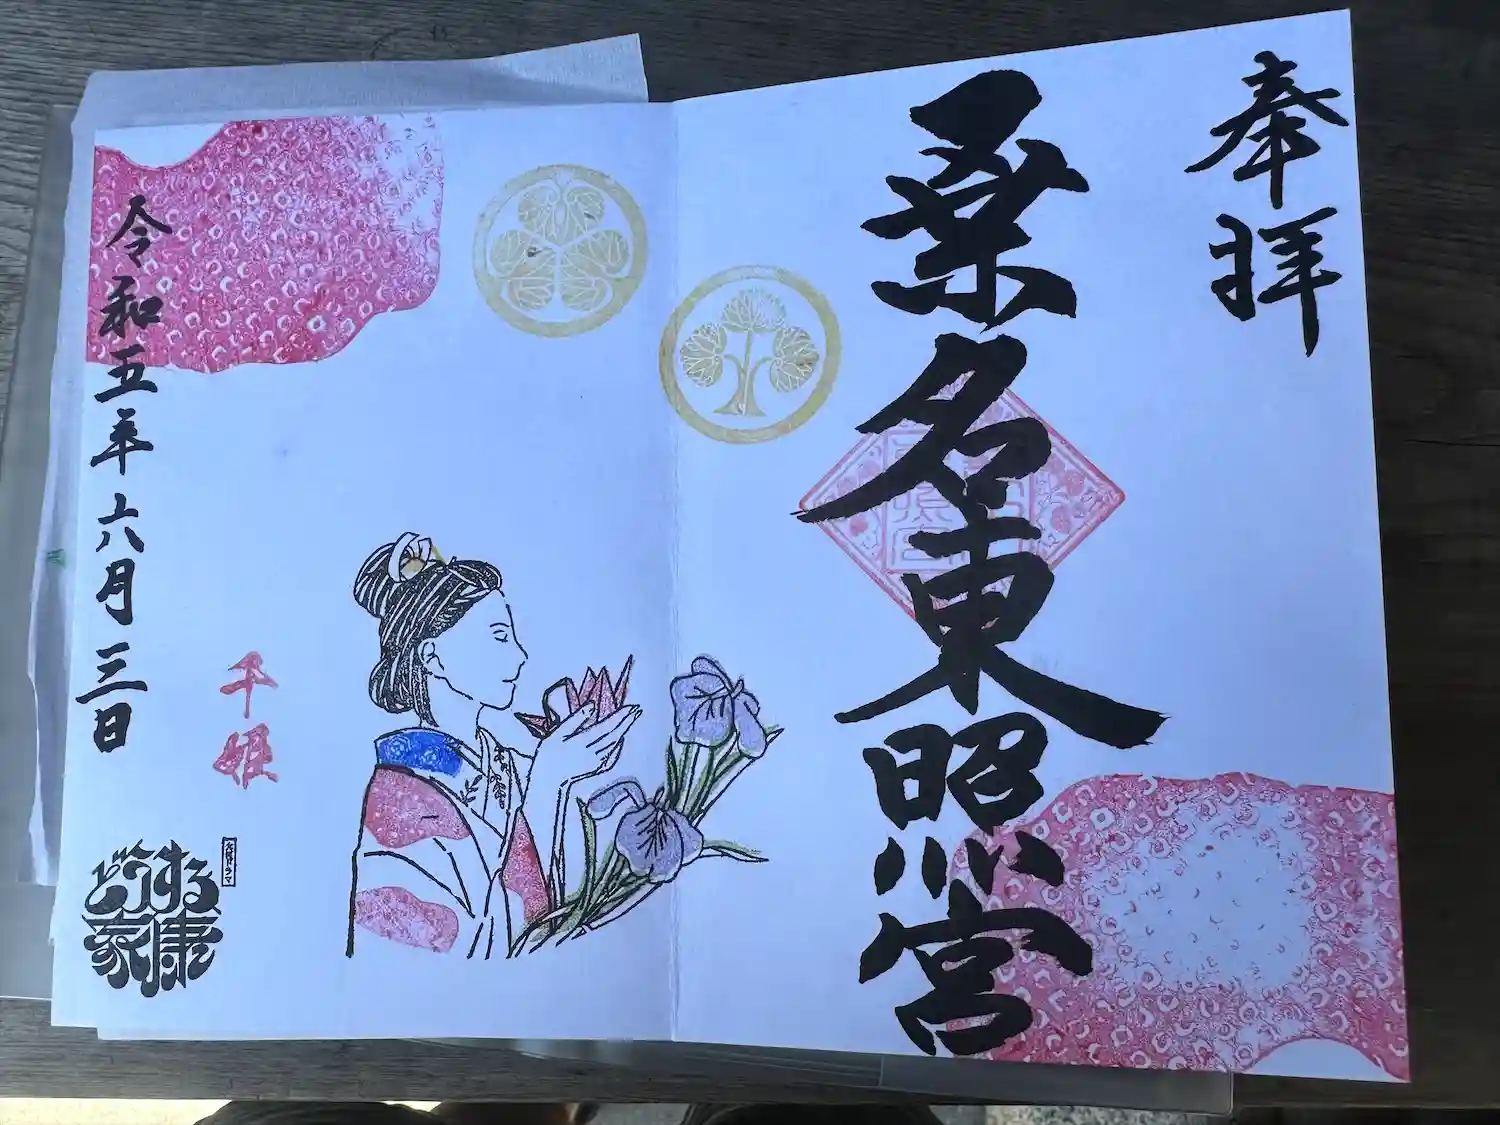 奉拝
桑名東照宮
令和五年六月三日
千姫
大河ドラマ
どうする
家康